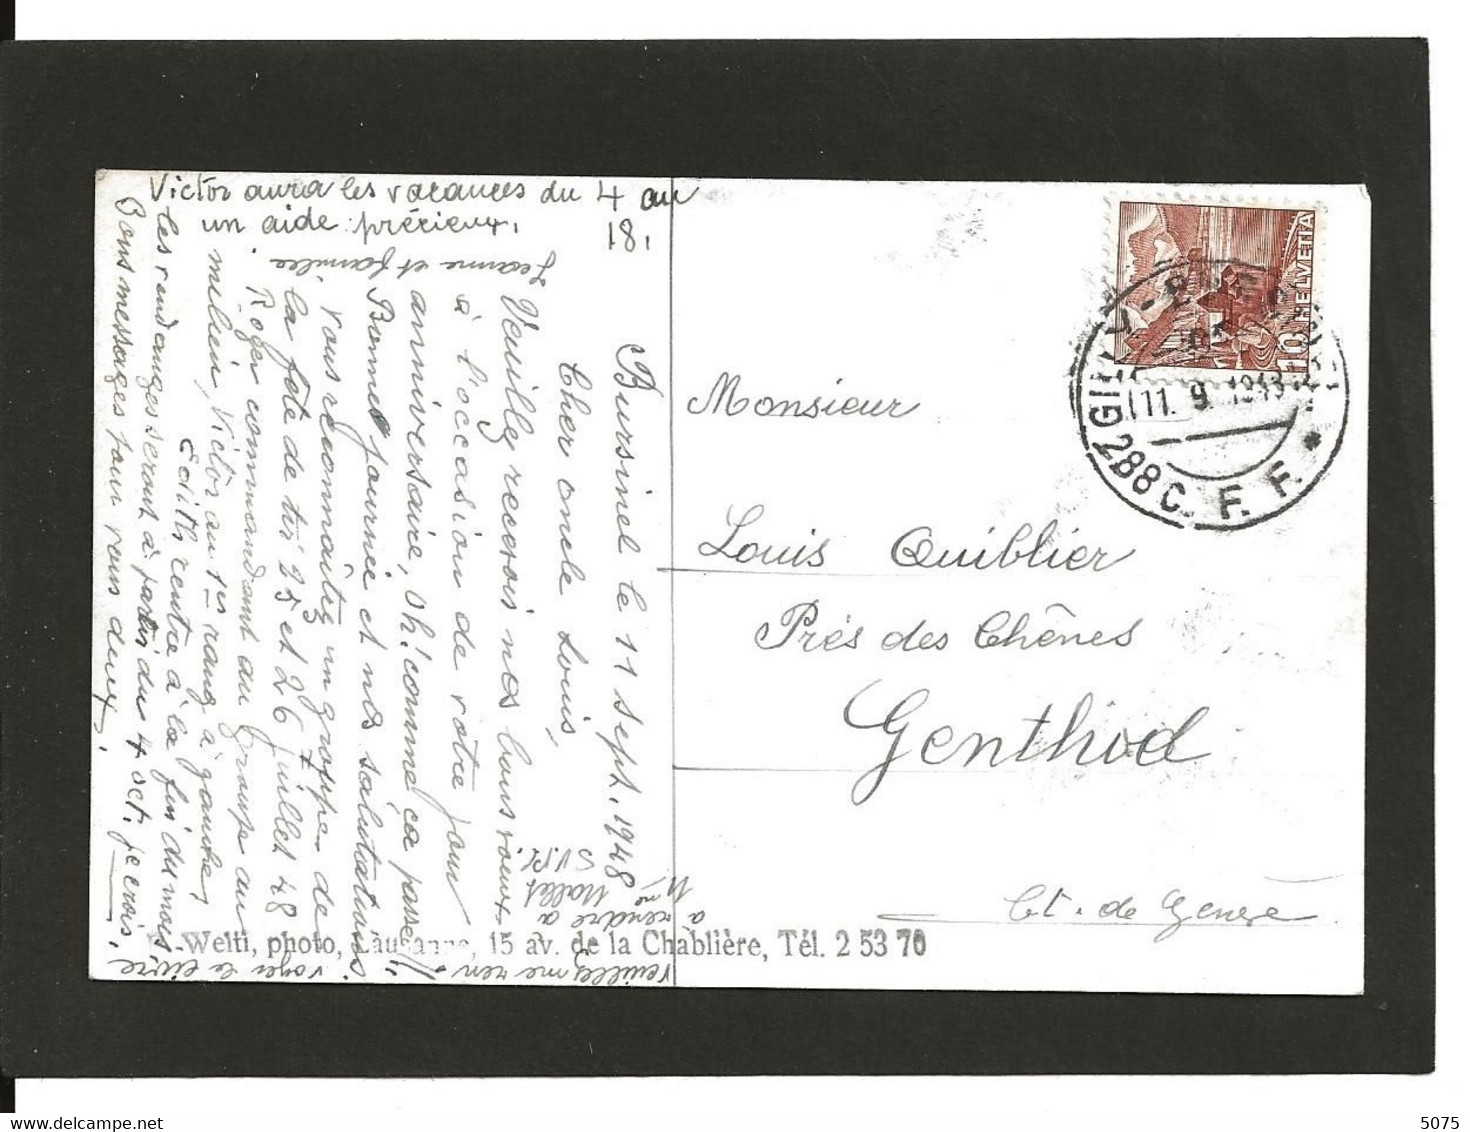 Bursinel le 11 sept. 1948
Cher oncle Louis,
Veuillez recevois nos bons voeux
à l'occasion de votre jour
anniversaire, oh! comme ca passe!!
Bonne journée et nos salutations
Jeanne et famille.
vous reconnaîtrez un groupe de
la fête de tir 25 et 26 juillet 48
Roger commandant du groupe au
milieu, Victor au 1er rang à gauche,
Edith rentre à la fin du mois
les vendanges seront à partir du 4 oct. je crois.
Bons messages pour vous deux.
Victor aura les vacances du 4 au
18.
un aide précieux.
voyez le livre
veuillez me ren-
a rendre a
Mme Mallet
S.V.P.
Welti, photo, Lausanne, 15 av. de la Chablière, Tél. 2 53 70
Monsieur
Louis Quiblier
Prés des Chênes
Genthod
Ct. de Genève
10 HELVETIA
11. 9. 1948
288 C. F. F.
delcampe.net
5075